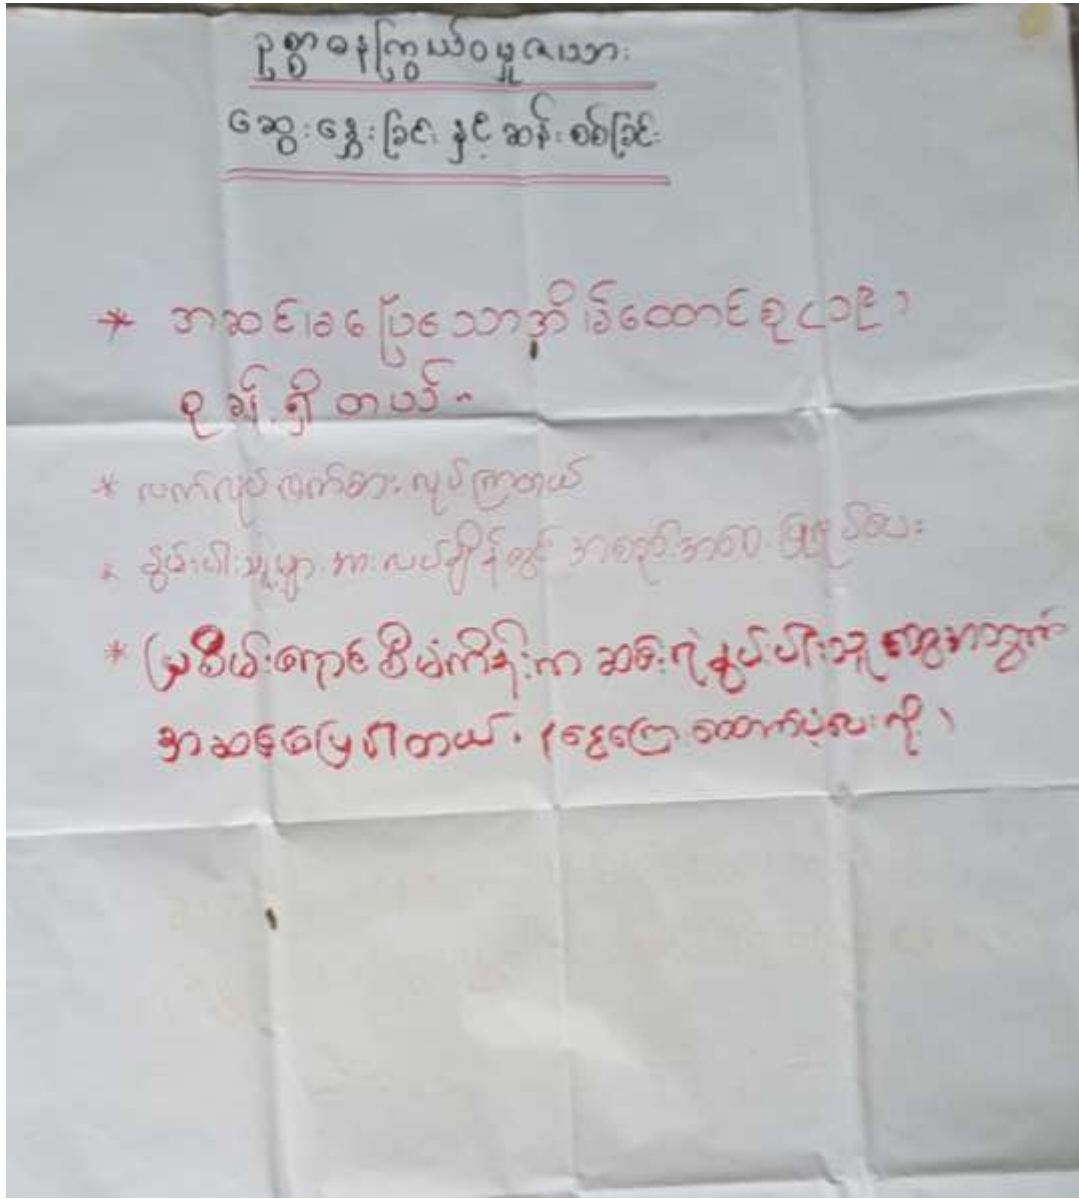 ဥစ္စာဓနကြွယ်ဝမှုဇယား
ဆွေးနွေးခြင်းနှင့် ဆန်းစစ်ခြင်း
* အဆင်အပြေသောအိမ်ထောင်စု (၁၉)
စုခန့်ရှိတယ်။
* လက်လုပ်လက်စား လုပ်ကြတယ်
* နွမ်းပါးသူများ အားလပ်ချိန်တွင်
* မြစိမ်းရောင်စီမံကိန်းက ဆင်းရဲနွမ်းပါးသူတွေအတွက်
အဆင်ပြေပါတယ်။ (ငွေကြေးထောက်ပံ့ပေးလို့)